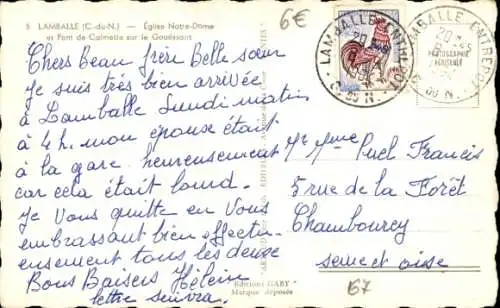 5 LAMBALLE (C.-du-N.) — Église Notre-Dame
et Pont de Calmette sur le Gouessant
6€
Chers beau frère Belle sœur
Je suis très bien arrivée
à Lamballe Lundi matin
à 4 h. mon épouse était
à la gare heureusement
car cela était lourd.
Je Vous quitte en Vous
embrassant bien affectu-
eusement tous les deux
Bons Baisers Hélein
lettre suivra.
Éditions GABY
Marque déposée
LAMBALLE ENTREPOT
C. DU N.
LAMBALLE ENTREPOT
C. DU N.
Mr Mme Puel Francis
5 rue de la Forêt
Chambourcy
seine et oise
67